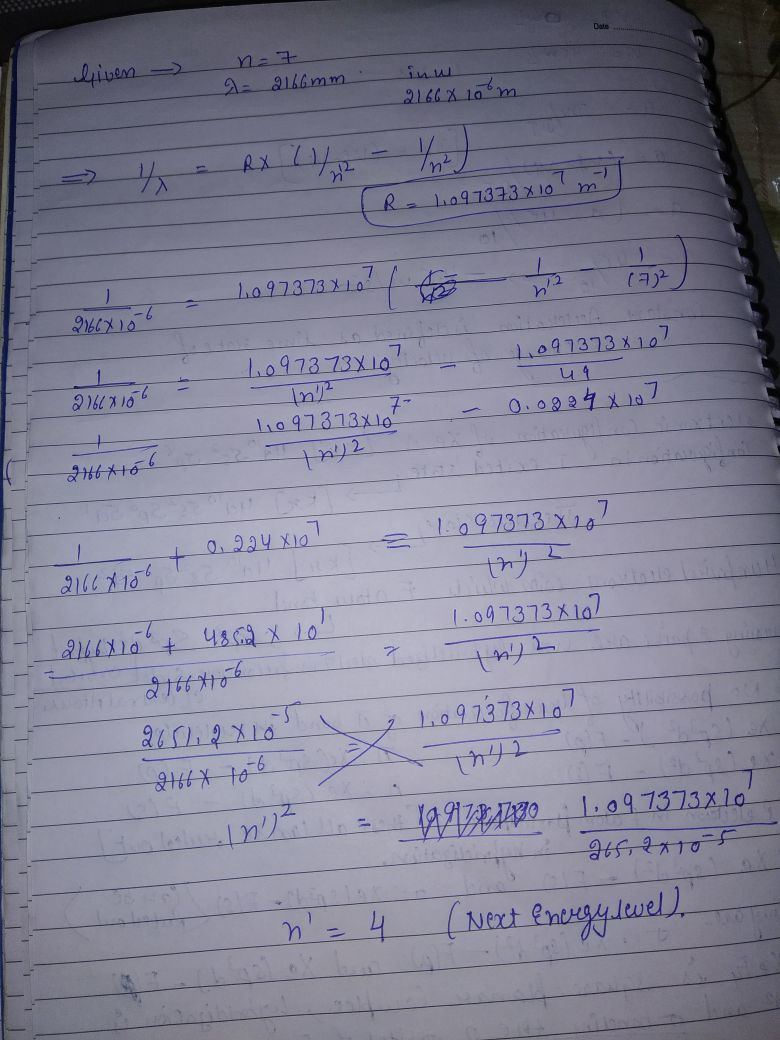 Date
Given → n = 7
λ = 2166mm. in w
2166 × 10⁻⁶ m
⇒ 1/λ = R × (1/n'² − 1/n²)
R = 1.097373 × 10⁷ m⁻¹
1/2166×10⁻⁶ = 1.097373×10⁷ ( 1/n'² − 1/(7)² )
1/2166×10⁻⁶ = 1.097373×10⁷/(n')² − 1.097373×10⁷/49
1/2166×10⁻⁶ = 1.097373×10⁷/(n')² − 0.0224 × 10⁷
1/2166×10⁻⁶ + 0.224×10⁷ = 1.097373×10⁷/(n')²
= 2166×10⁻⁶ + 485.2 × 10¹/2166×10⁻⁶ = 1.097373×10⁷/(n')²
2651.2×10⁻⁵/2166×10⁻⁶ = 1.097373×10⁷/(n')²
(n')² = 1.097373×10⁷/265.2×10⁻⁵
n' = 4 (Next Energy level).